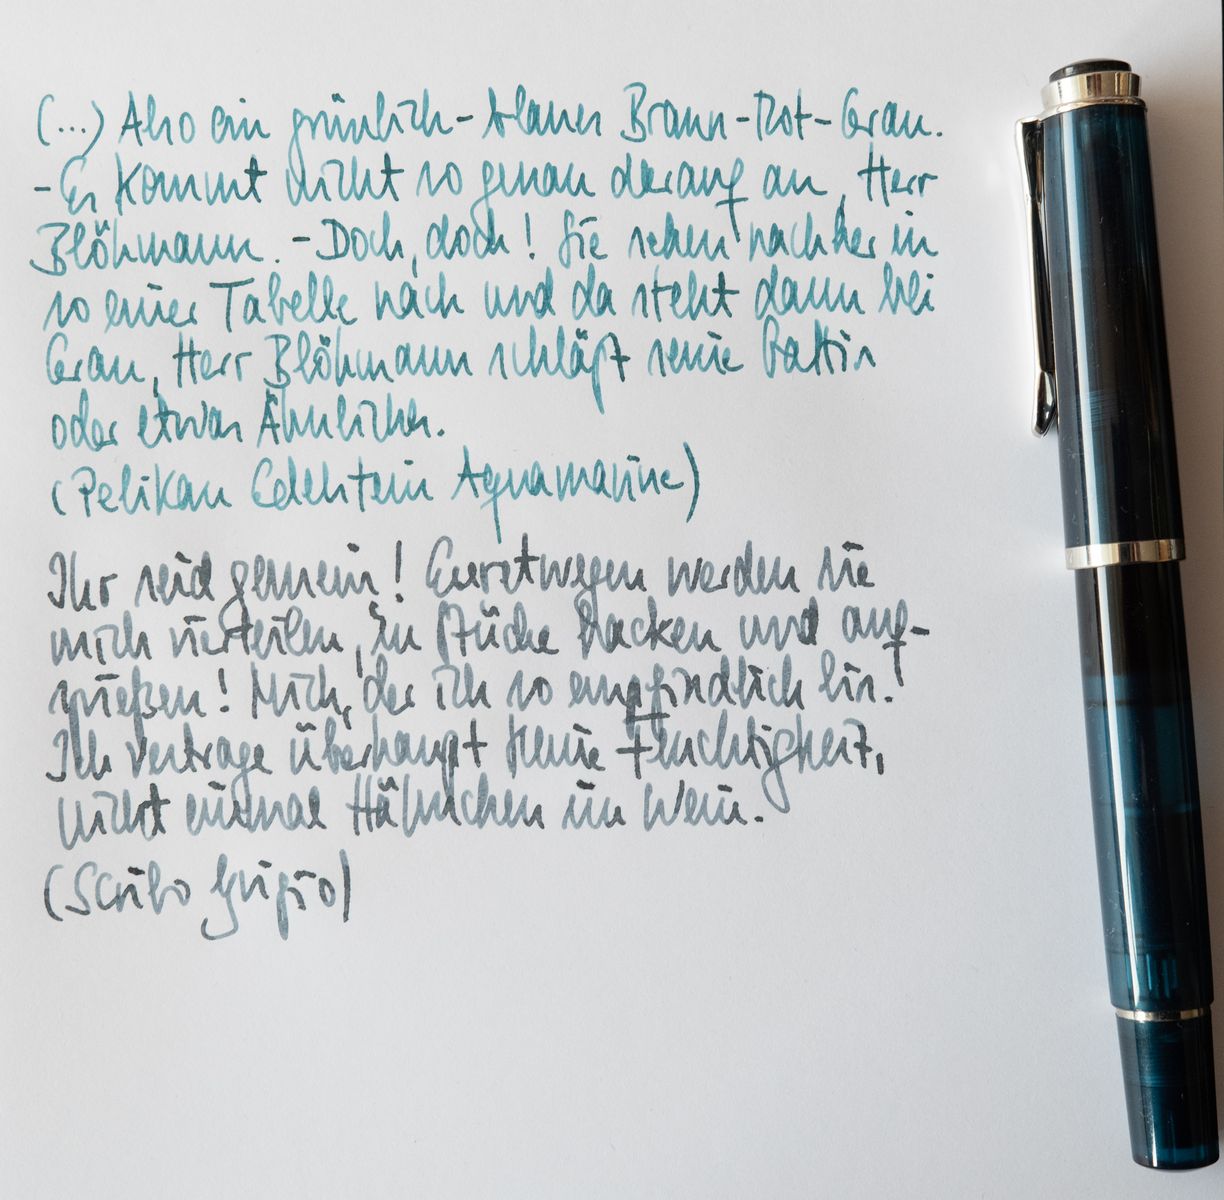 (...) Also ein grünlich-blaues Braun-Rot-Grau.
- Es kommt nicht so genau darauf an, Herr
Blöhmann. - Doch, doch! Sie sehen nachher in
so einer Tabelle nach und da steht dann bei
Grau, Herr Blöhmann schlägt seine Gattin
oder etwas Ähnliches.
(Pelikan Edelstein Aquamarine)
Ihr seid gemein! Euretwegen werden sie
mich vierteilen, in Stücke hacken und auf-
spießen! Mich, der ich so empfindlich bin.
Ich vertrage überhaupt keine Feuchtigkeit,
nicht einmal Hähnchen in Wein.
(Scribo Grigio)